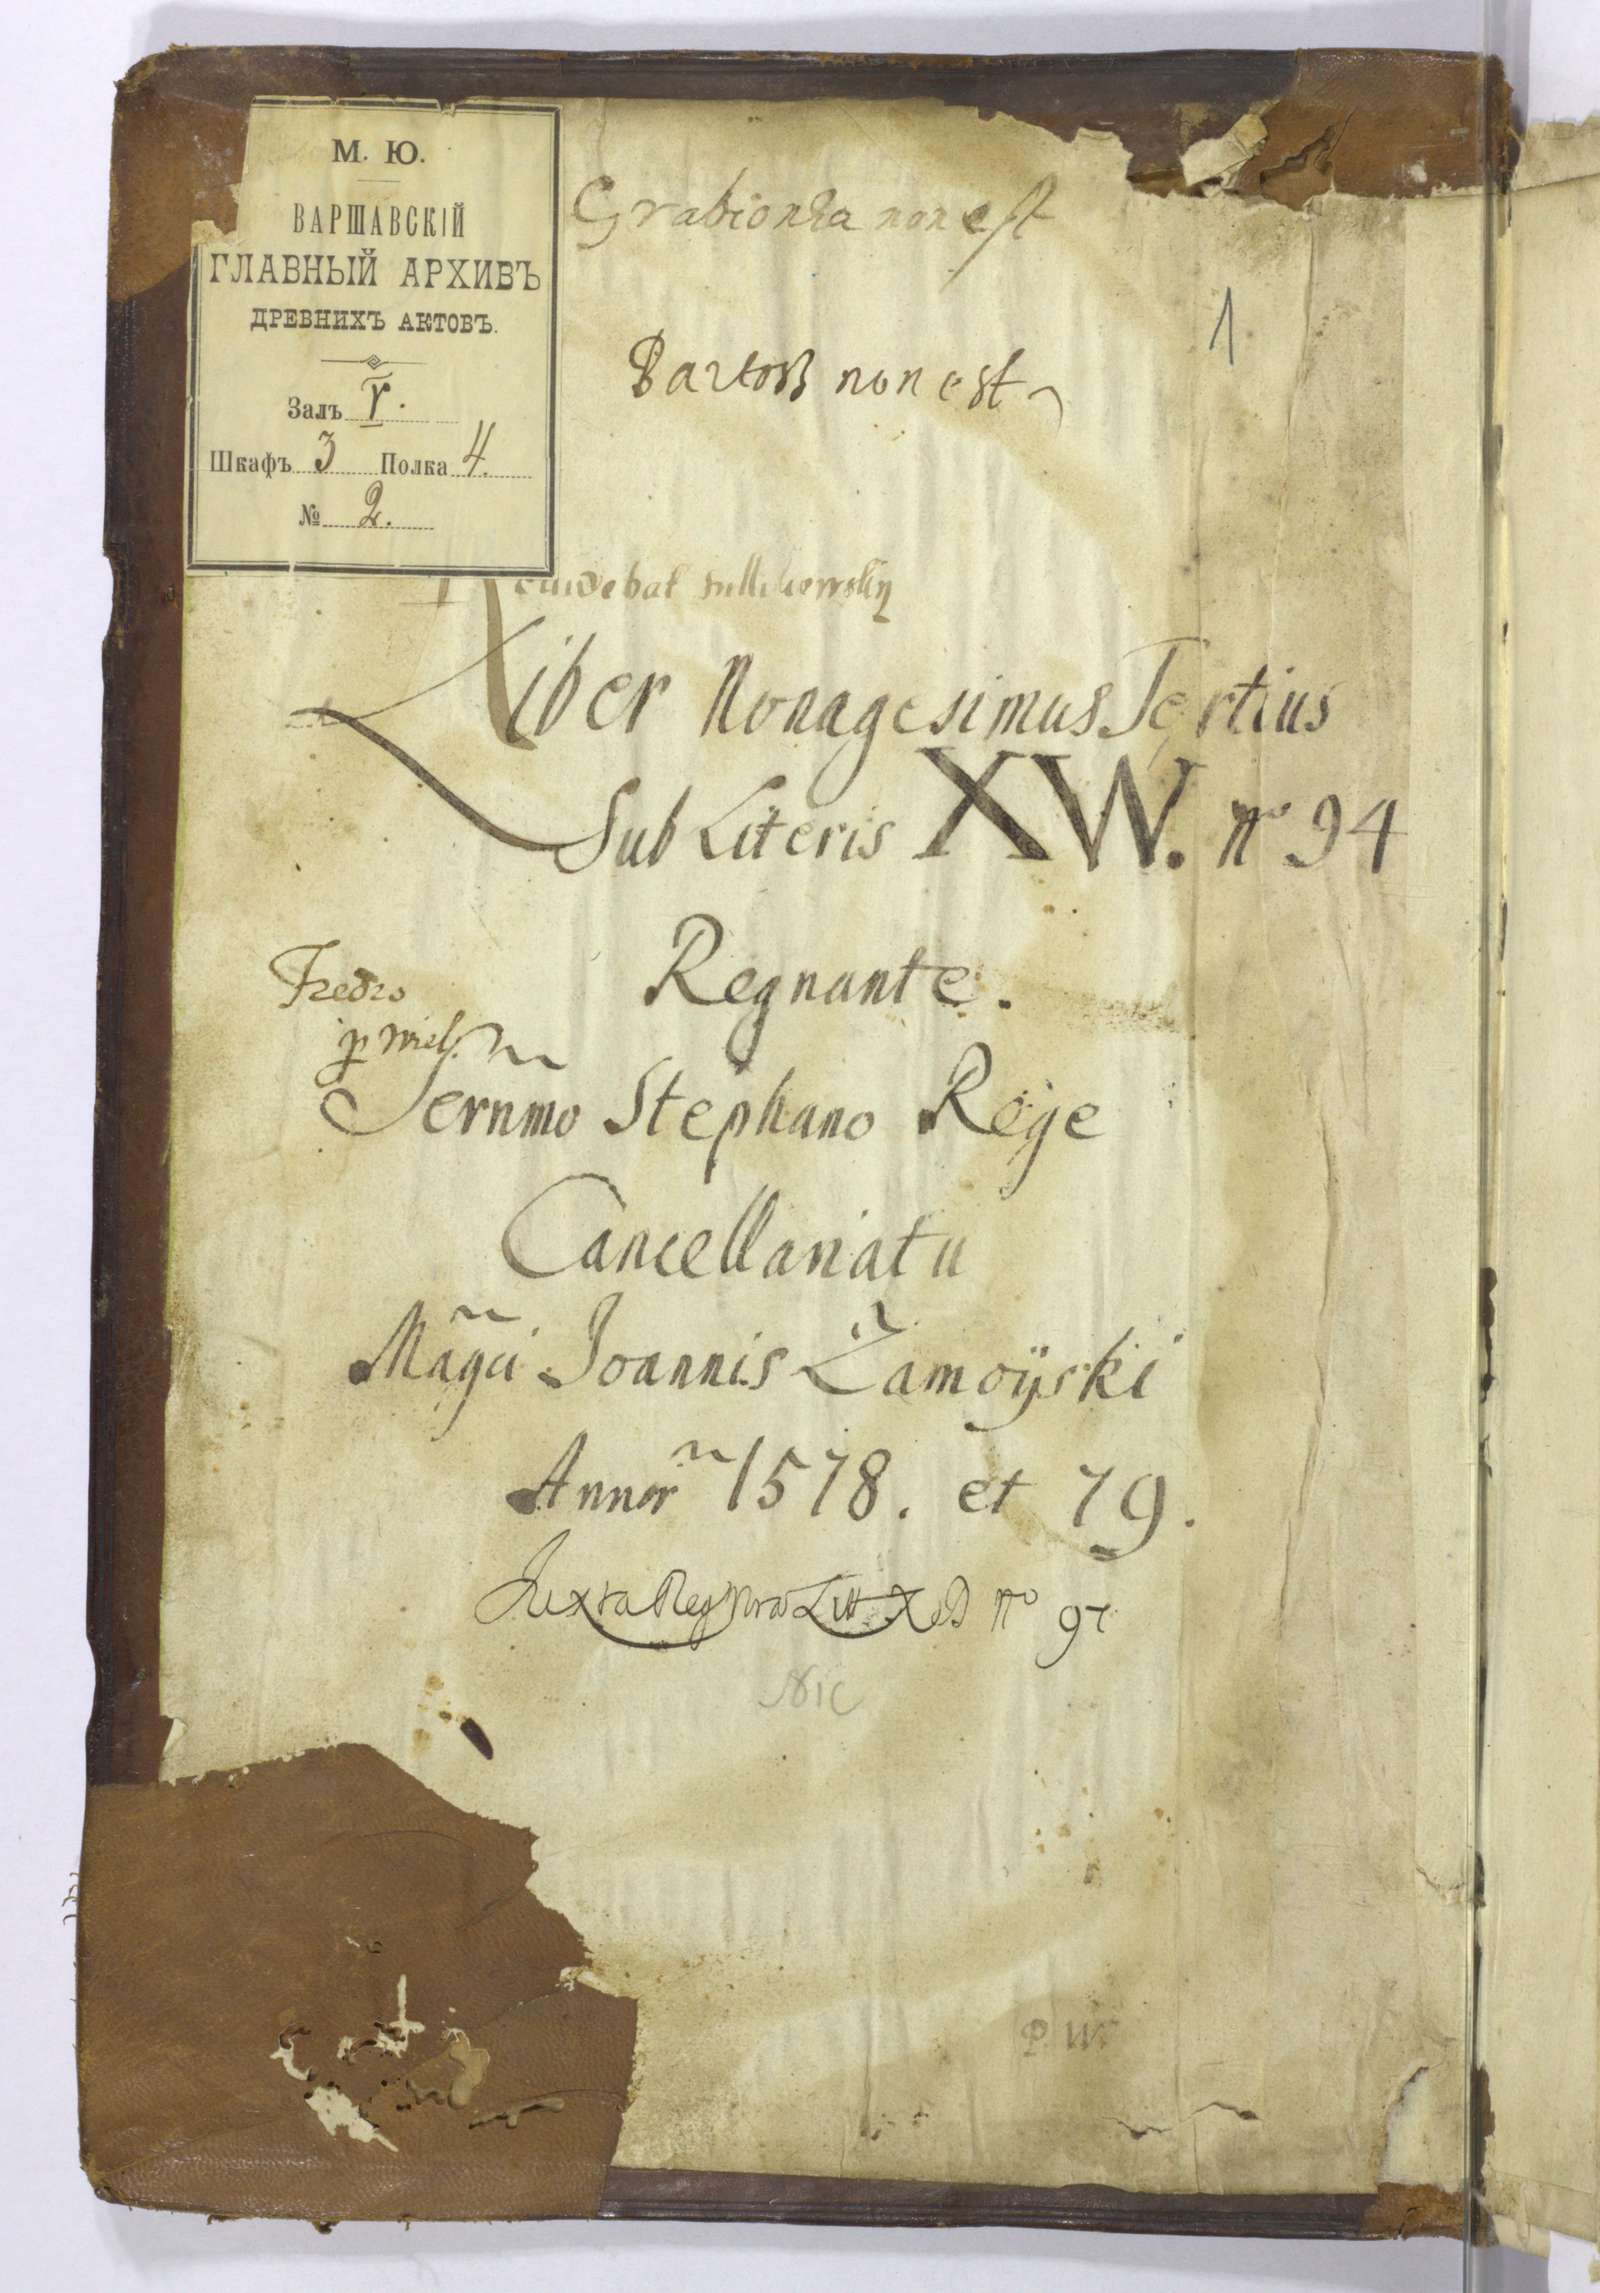 М. Ю.
ВАРШАВСКІЙ
ГЛАВНЫЙ АРХИВЪ
ДРЕВНИХЪ АКТОВЪ.
Залъ V.
Шкафъ 3 Полка 4.
№ 2.
Grabionka non est
1
Bartoss non est
Liber Nonagesimus Tertius
Sub Literis XW. No 94
Regnante.
Fredro
Sernmo Stephano Rege
Cancellariatu
Magci Joannis Zamoÿski
Annor 1578. et 79.
Juxta Litt No 97